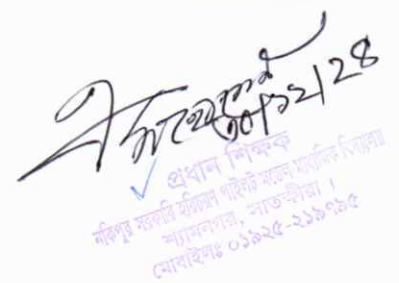 ৩০/১২/২৪
প্রধান শিক্ষক
নকিপুর সরকারি হরিচরণ পাইলট মডেল মাধ্যমিক বিদ্যালয়
শ্যামনগর, সাতক্ষীরা ।
মোবাইলঃ ০১৯২৫-২১৯৭৯৫